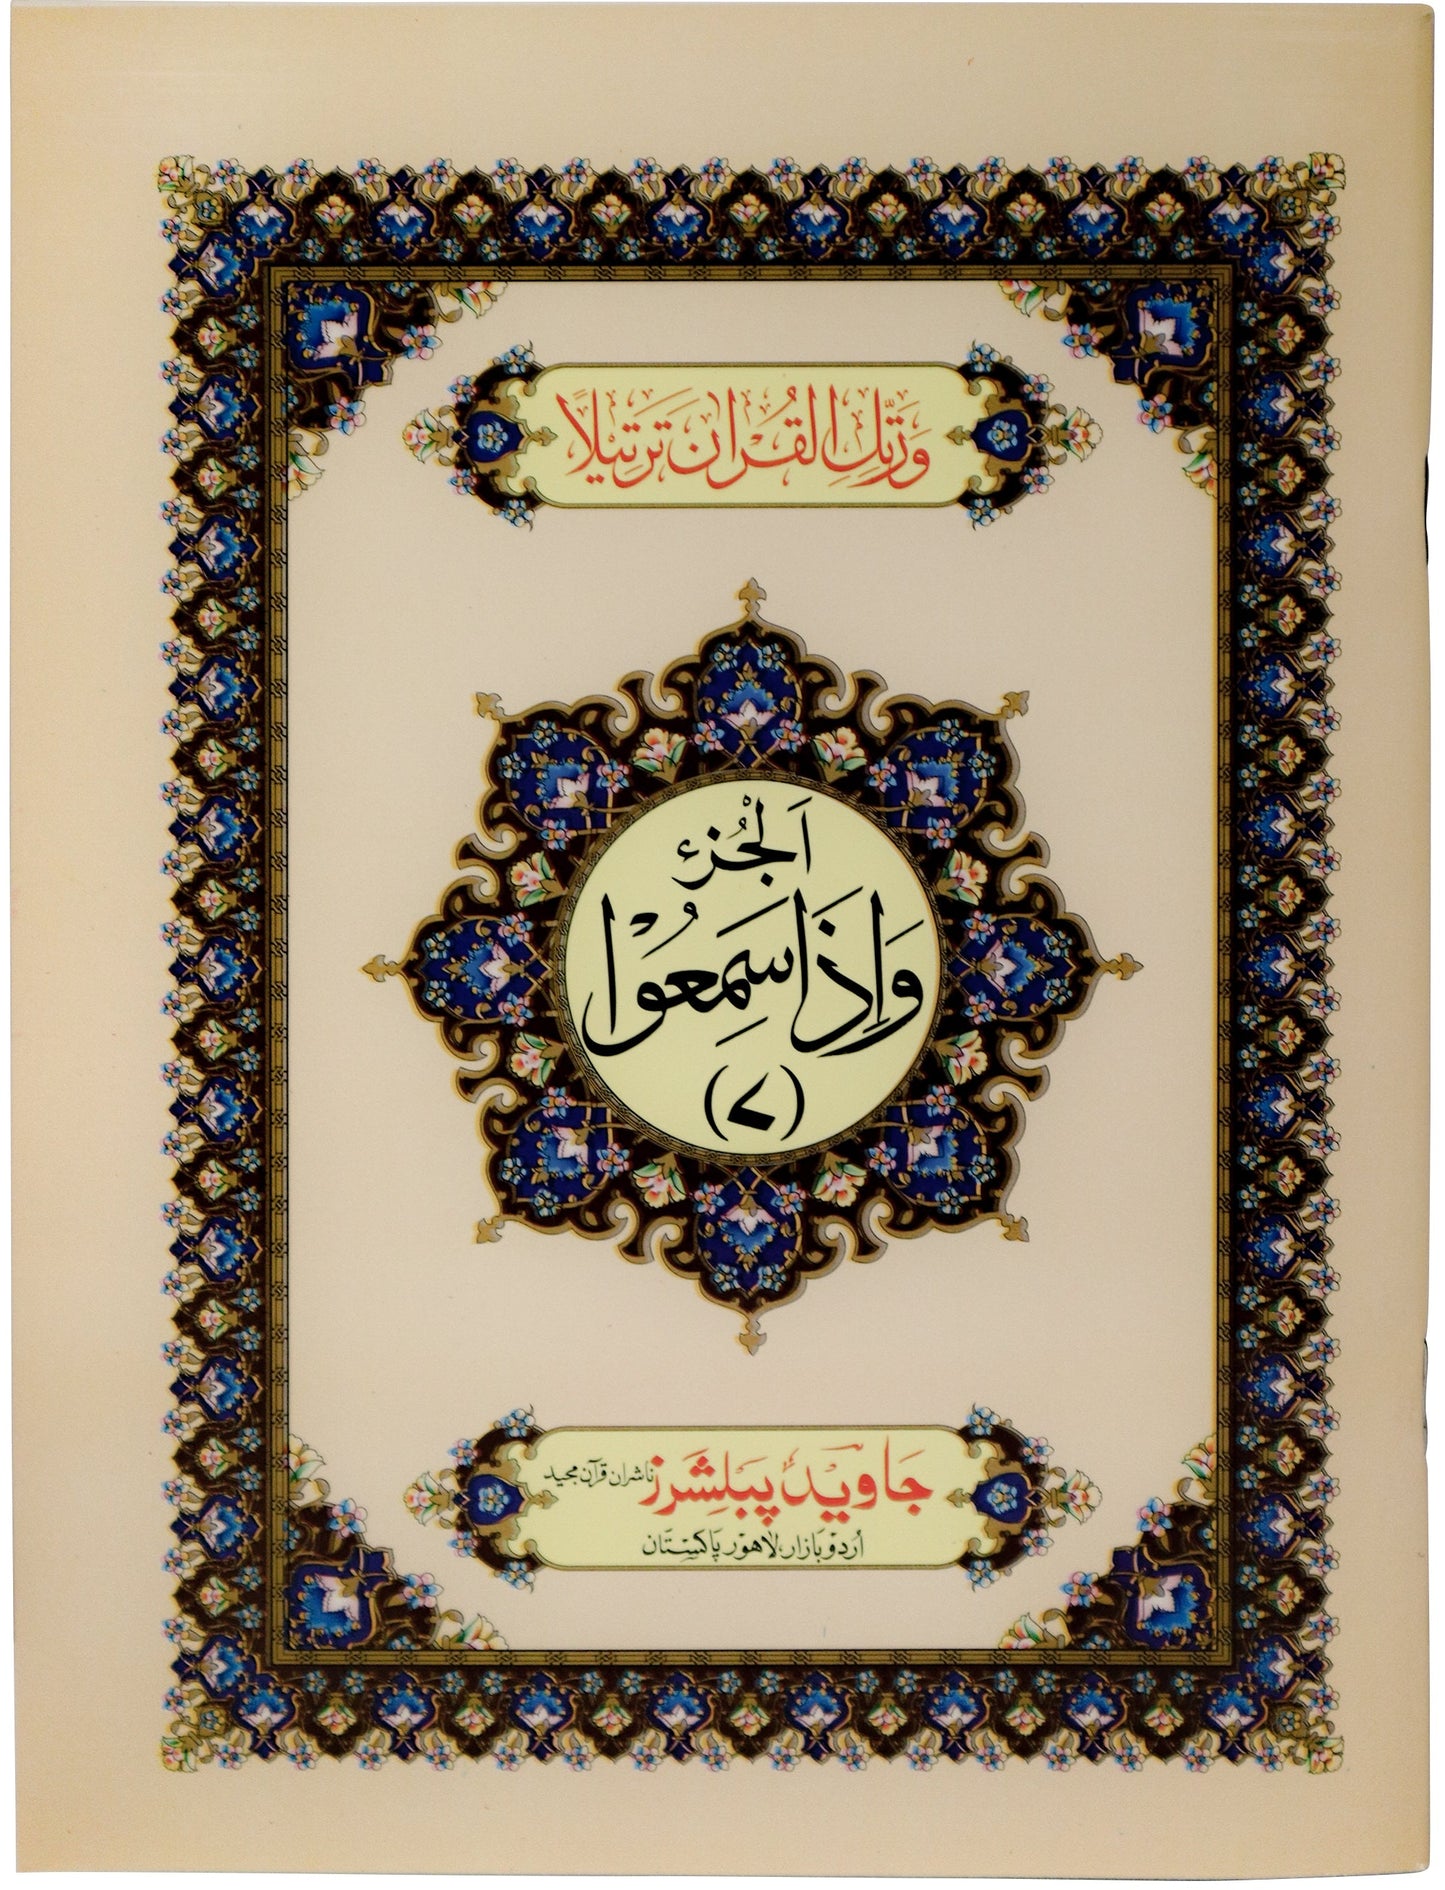 وَرَتِّلِ الْقُرْاٰنَ تَرْتِيْلًا
اَلْجُزْءُ
وَاِذَا سَمِعُوْا
(۷)
جَاوید پَبلِشَرز ناشران قرآن مجید
اُردو بازار، لاہور پاکستان